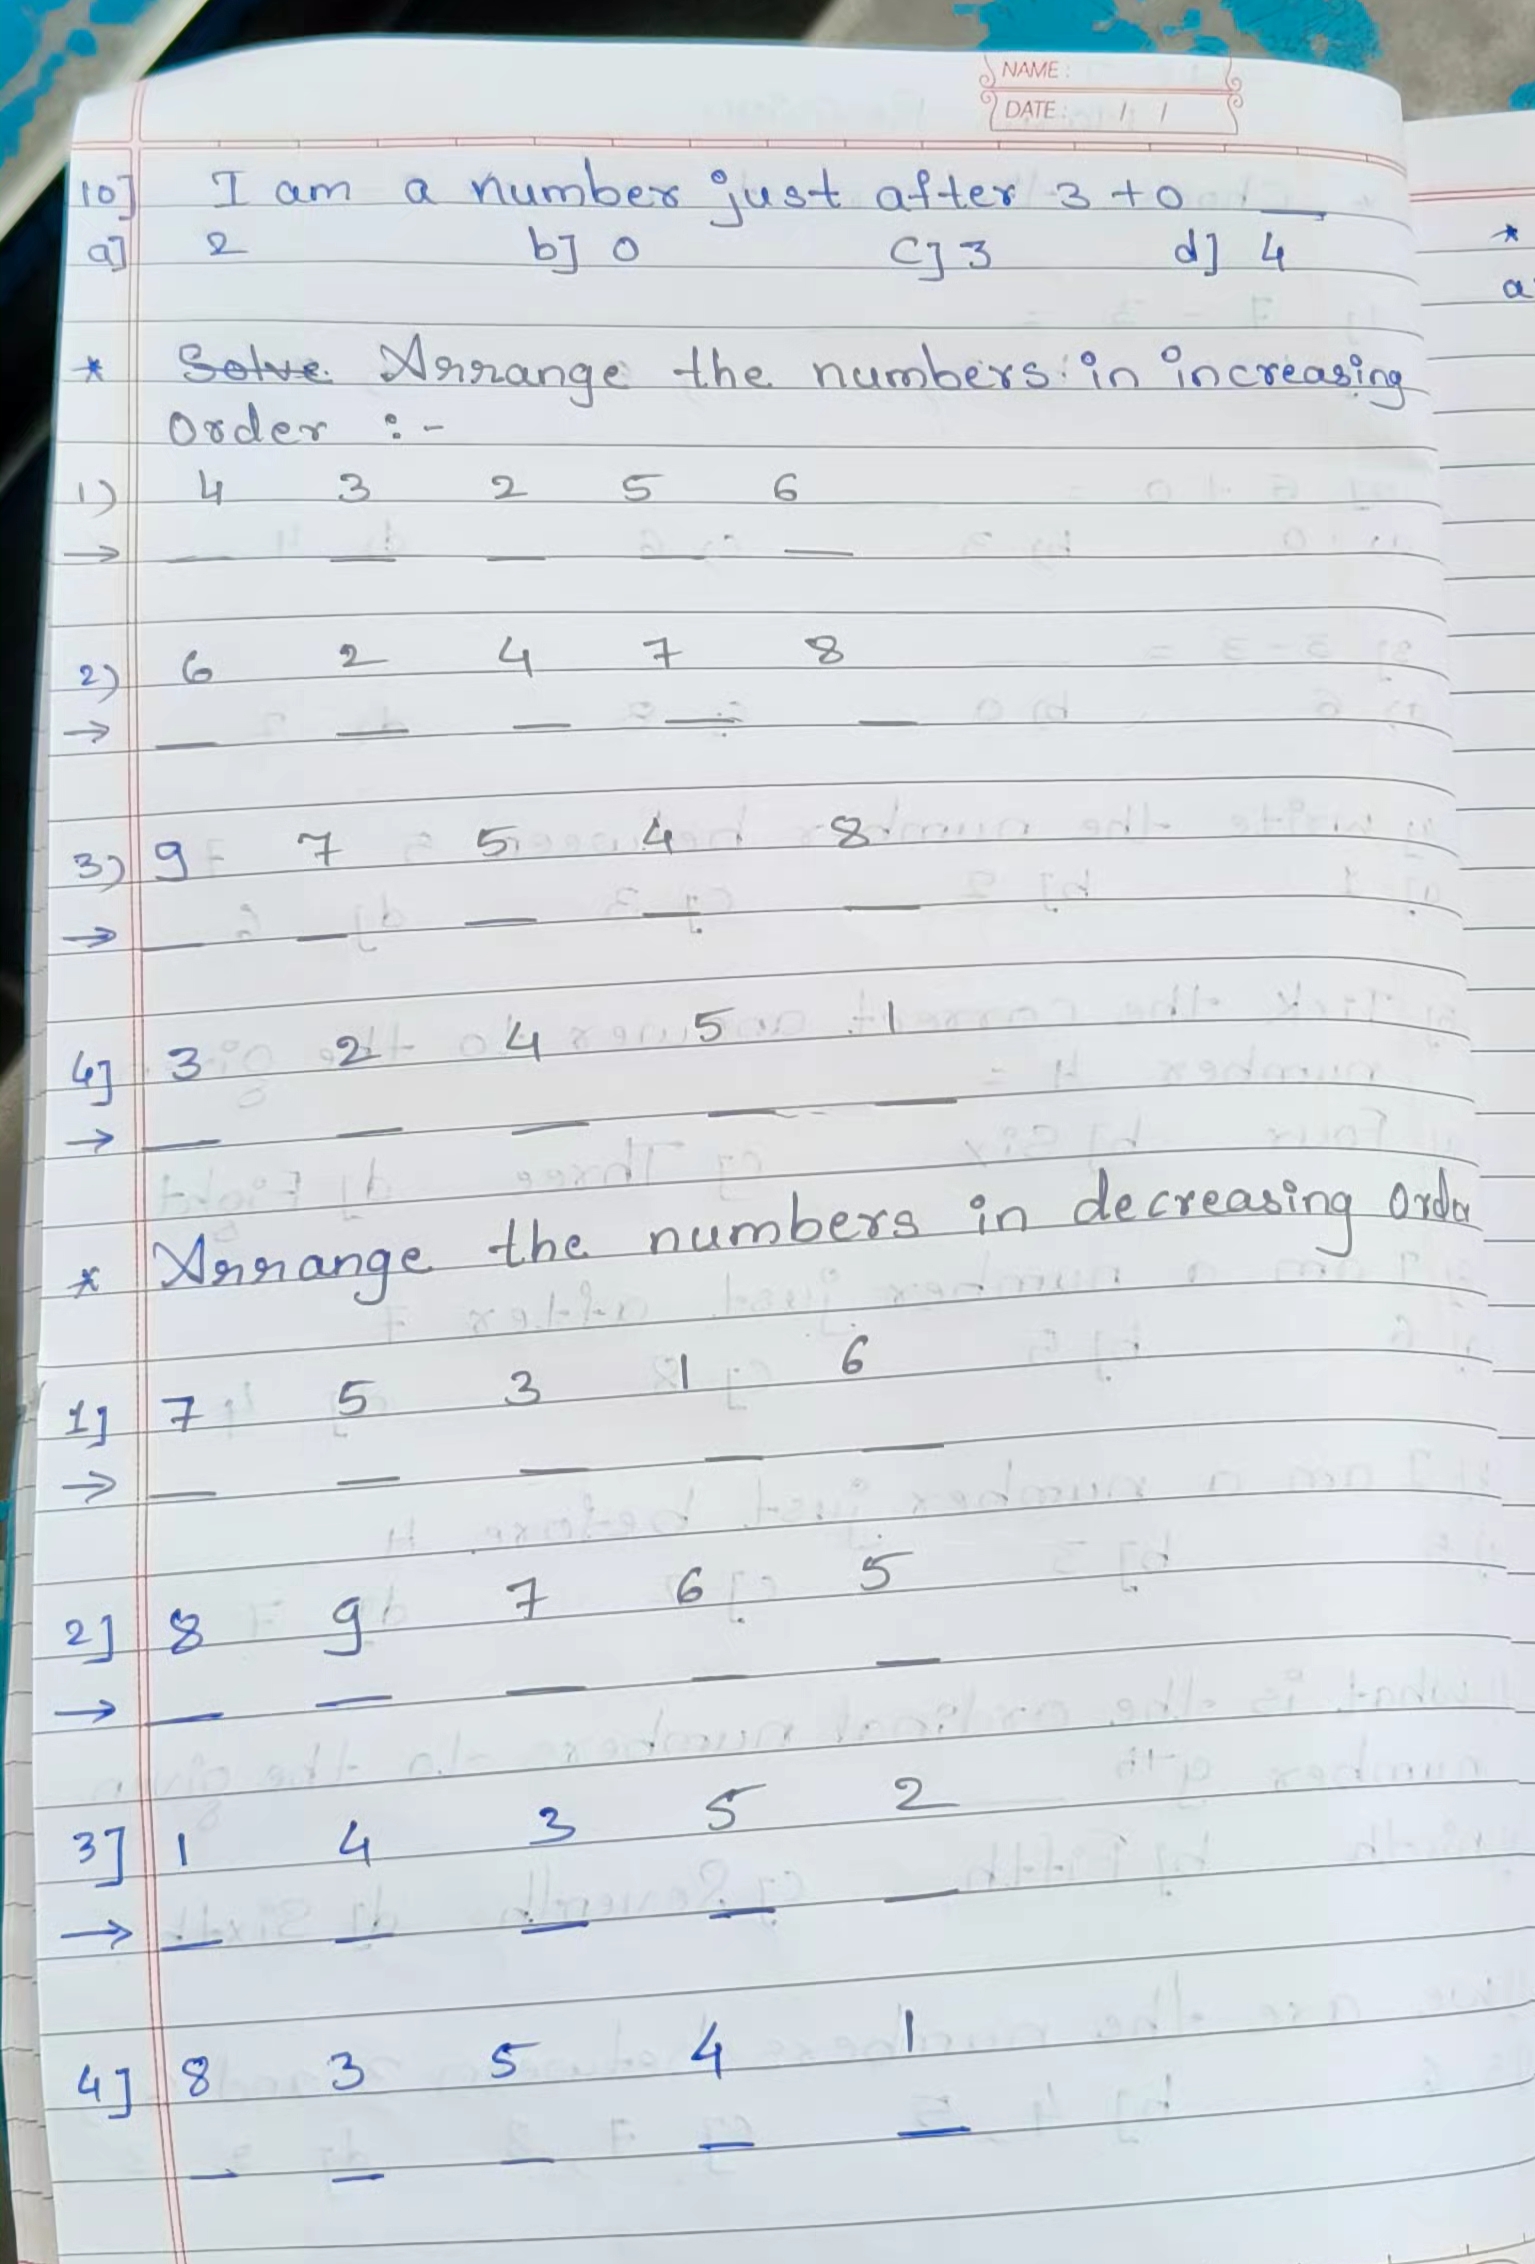 NAME:
DATE: / /
10] I am a number just after 3 + 0 __
a] 2 b] 0 c] 3 d] 4
* Solve. Arrange the numbers in increasing
Order :-
1) 4 3 2 5 6
→ __ __ __ __ __
2) 6 2 4 7 8
→ __ __ __ __ __
3) 9 7 5 4 8
→ __ __ __ __ __
4] 3 2 4 5 1
→ __ __ __ __ __
* Arrange the numbers in decreasing Order
1] 7 5 3 1 6
→ __ __ __ __ __
2] 8 9 7 6 5
→ __ __ __ __ __
3] 1 4 3 5 2
→ __ __ __ __ __
4] 8 3 5 4 1
__ __ __ __ __
*
a